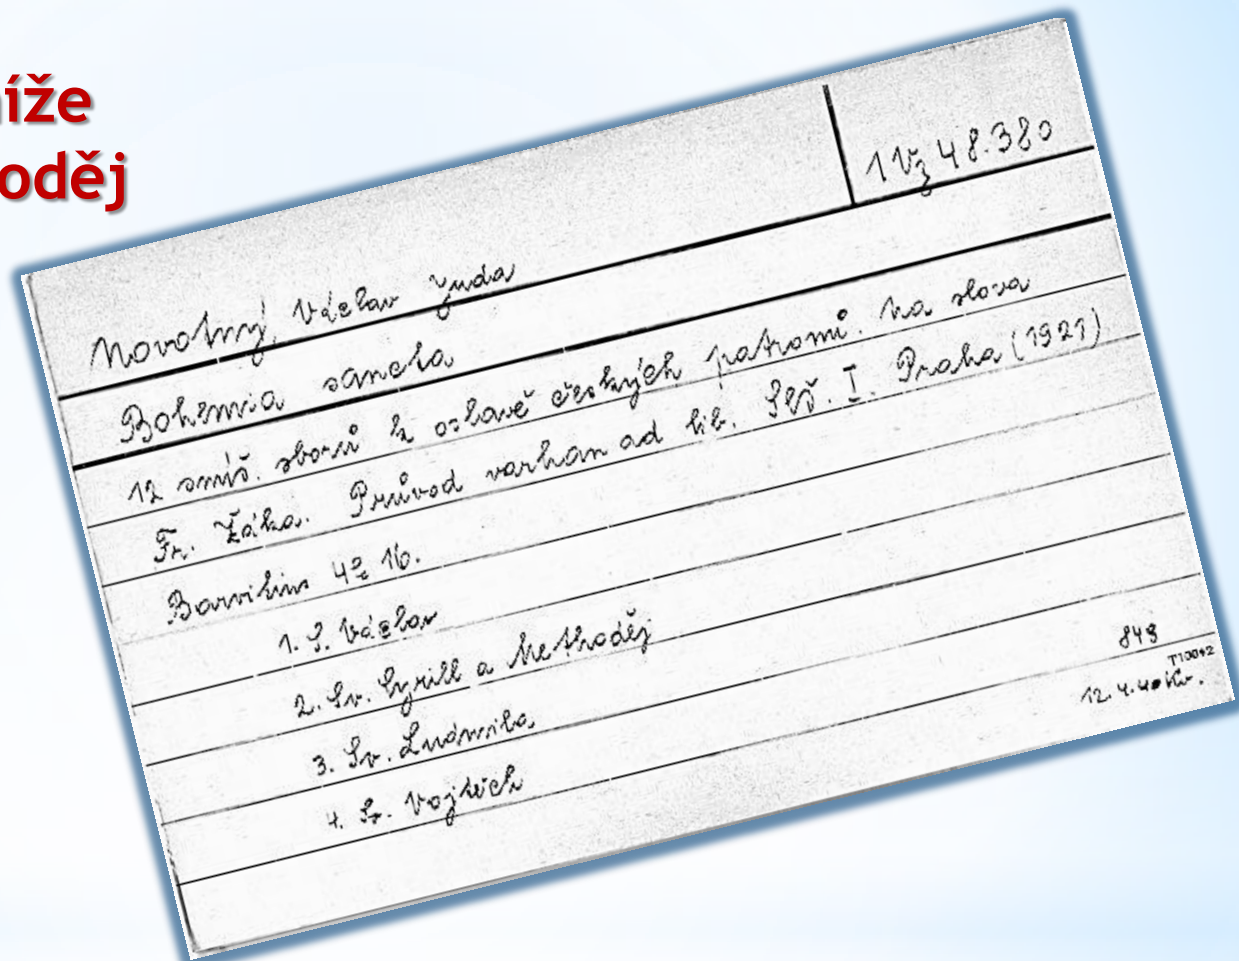 íže
oděj
1 Vz 48.380
Novotný, Václav Juda
Bohemia sancta
12 smíš. sborů k oslavě českých patronů. Na slova
Fr. Žáka. Průvod varhan ad lib. Seš. I. Praha (1921)
Barvitius 4° 16.
1. S. Václav
2. Sv. Cyrill a Methoděj
3. Sv. Ludmila
4. Sv. Vojtěch
848
T10042
12.4.40 Kv.